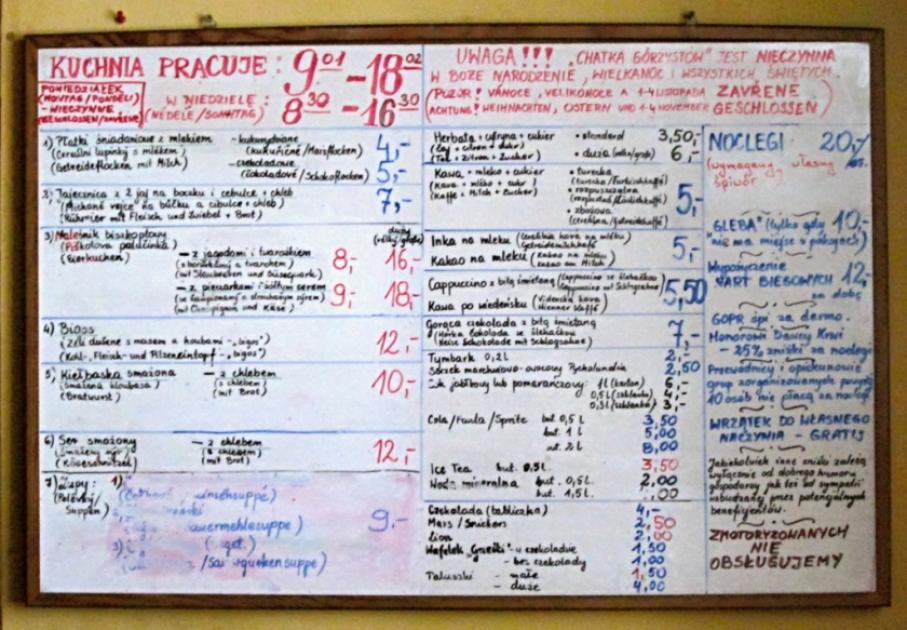 KUCHNIA PRACUJE: 9⁰¹ -18⁰²
PONIEDZIAŁEK
(MONTAG/PONDĚLÍ)
- NIECZYNNE
W NIEDZIELĘ:
(NEDĚLE/SONNTAG) 8³⁰ - 16³⁰
1) Płatki śniadaniowe z mlekiem - kukurydziane 4,-
(Cereální lupínky s mlékem) (kukuřičné/Maisflocken)
(Getreideflocken mit Milch) - czekoladowe 5,-
(čokoládové/Schokoflocken)
2) Jajecznica z 2 jaj na boczku i cebulce + chleb 7,-
(Míchané vejce na bůčku a cibulce + chléb)
(Rührier mit Fleisch und Zwiebel + Brot)
3) Naleśnik biszkoptowy
(Piškotová palačinka)
(Bierkuchen)
- z jagodami i twarożkiem 8,- 16,-
(s borůvkami a tvarohem)
- z pieczarkami i żółtym serem 9,- 18,-
(mit Champignon und Käse)
4) Bigos 12,-
(Zelí dušené s masem a houbami - "bigos")
(Kohl-, Fleisch- und Pilzeneintopf - "bigos")
5) Kiełbaska smażona - z chlebem 10,-
(smažená klobása) (s chlebem)
(Bratwurst) (mit Brot)
6) Ser smażony - z chlebem 12,-
(Smažený sýr) (s chlebem)
(Käseschnitzel) (mit Brot)
7) Zupy: 1)
(Polévky/
Suppen)
9,-
3)
UWAGA!!! "CHATKA GÓRZYSTÓW" JEST NIECZYNNA
W BOŻE NARODZENIE, WIELKANOC I WSZYSTKICH ŚWIĘTYCH.
(POZOR! VÁNOCE, VELIKONOCE A 1-4 LISTOPADA ZAVŘENE
ACHTUNG! WEIHNACHTEN, OSTERN UND 1-4 NOVEMBER GESCHLOSSEN)
Herbata + cytryna + cukier • standard 3,50,-
(Čaj + citron + cukr) • duża 6,-
(Tee + Zitron + Zucker)
Kawa + mleko + cukier • turecka
(Kava + mléko + cukr) • rozpuszczalna 5,-
(Kaffee + Milch + Zucker)
• zbożowa
Inka na mleku 5,-
Kakao na mleku (Kakao na mléku)
Cappuccino z bitą śmietaną 5,50
Kawa po wiedeńsku (Vídeňská káva)
(Wiener Kaffee)
Gorąca czekolada z bitą śmietaną 7,-
(Horká čokoláda se šlehačkou)
(Heiße Schokolade mit Schlagsahne)
Tymbark 0,2l 2,-
Soczek marchwiowo-owocowy 2,50
Sok jabłkowy lub pomarańczowy 1l (karton) 6,-
0,5l (szklanka) 4,-
0,3l (szklanka) 3,-
Cola/Fanta/Sprite but. 0,5 l 3,50
but. 1 l 5,00
but. 2 l 8,00
Ice Tea but. 0,5l. 3,50
Woda mineralna but. 0,5l. 2,00
but. 1,5l.
Czekolada (tabliczka) 4,-
Mars/Snickers 2,50
Lion 2,00
Wafelek "Grześki" - w czekoladzie 1,50
- bez czekolady 1,00
Paluszki - małe 1,50
- duże 4,00
NOCLEGI 20,-
(wymagany własny
śpiwór)
"GLEBA" (tylko gdy 10,-
nie ma miejsc w pokojach)
Wypożyczenie
NART BIEGOWYCH 12,-
za dobę
GOPR śpi za darmo.
Honorowi Dawcy Krwi
- 25% zniżki za noclegi
Przewodnicy i opiekunowie
grup zorganizowanych powyżej
10 osób nie płacą za noclegi
WRZĄTEK DO WŁASNEGO
NACZYNIA - GRATIS
Jakiekolwiek inne zniżki zależą
wyłącznie od dobrego humoru
gospodarzy jak też od sympatii
wzbudzanej przez potencjalnych
beneficjentów.
ZMOTORYZOWANYCH
NIE
OBSŁUGUJEMY